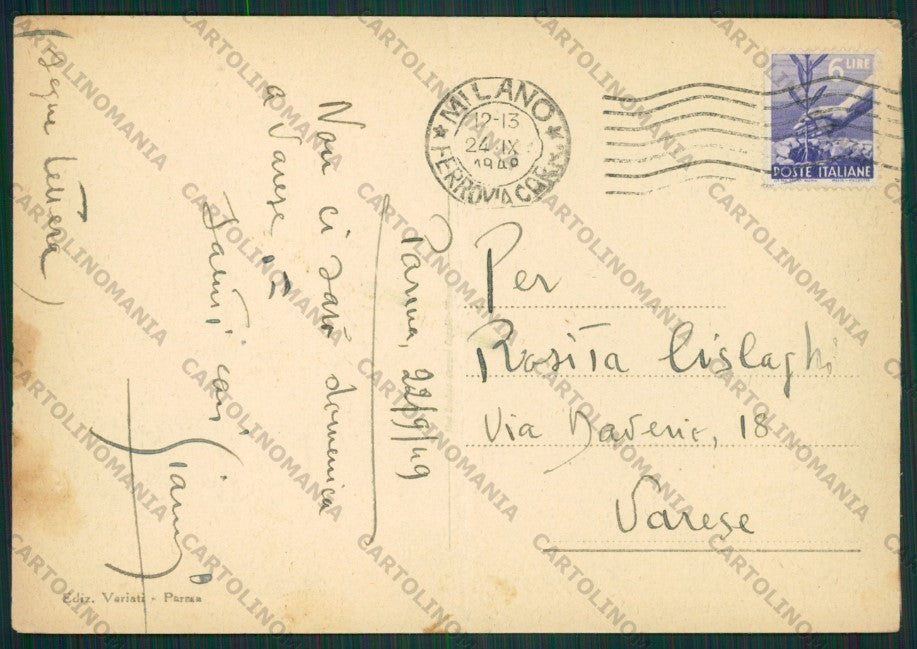 MILANO
12-13
24 IX
FERROVIA CORR.
6 LIRE
POSTE ITALIANE
Parma, 22/9/49
Non ci sarò domenica
a Varese
Saluti cari,
Gianni
(segue lettera)
Per
Rosita Cislaghi
Via 18
Varese
Ediz. Variati - Parma
CARTOLINOMANIA